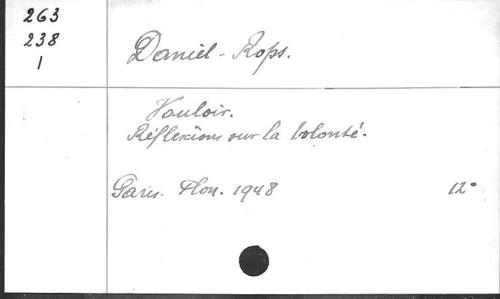 263
238
1
Daniel-Rops.
Vouloir.
Réflexions sur la volonté.
Paris. Plon. 1948 12°